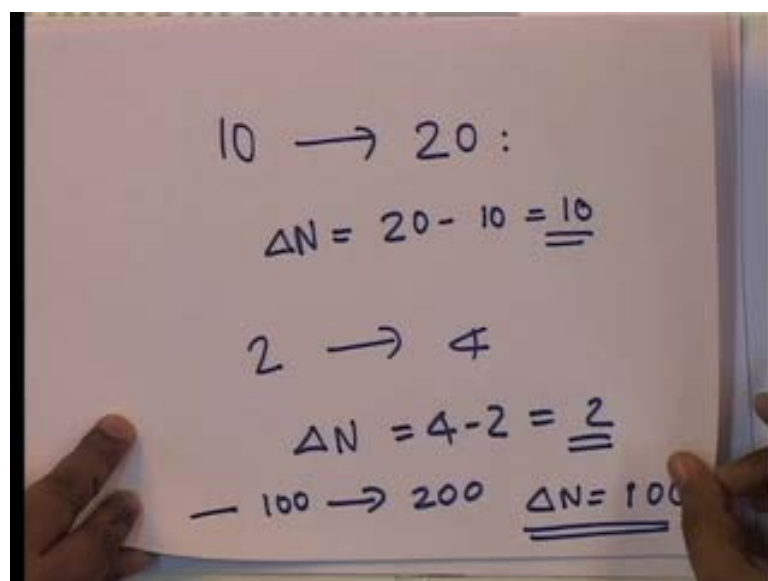 10 → 20 :
ΔN = 20 - 10 = 10
2 → 4
ΔN = 4 - 2 = 2
— 100 → 200 ΔN = 100